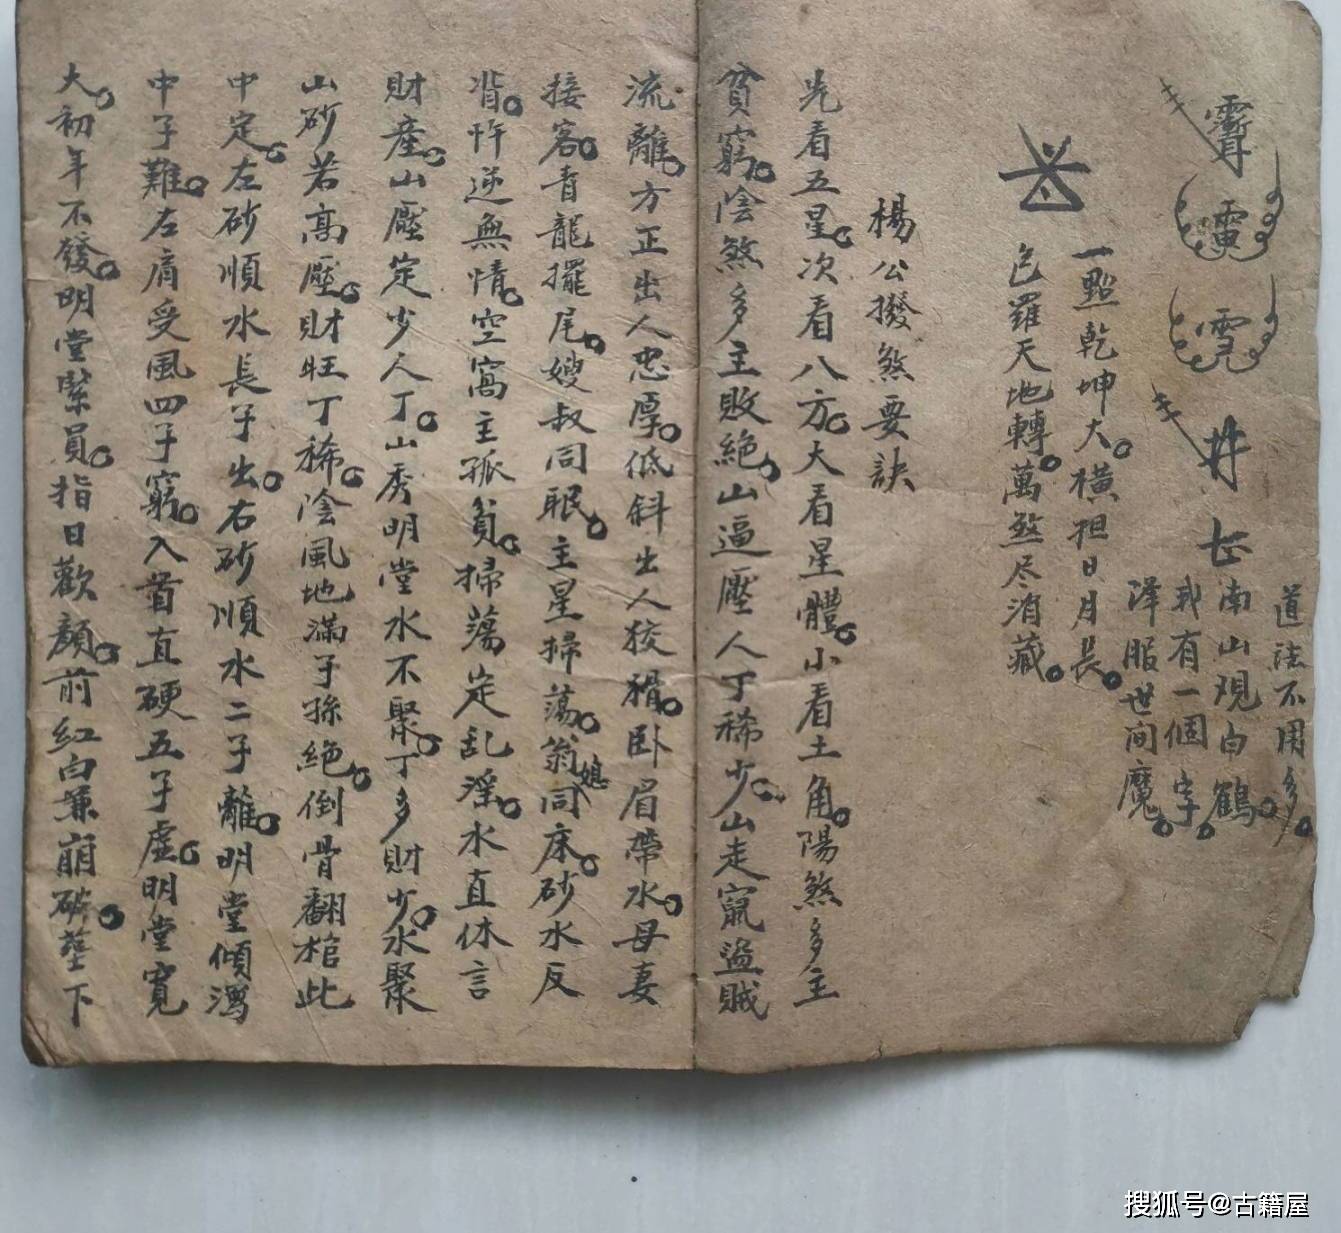 道法不用多
南山覌白鶴
我有一個字
澤服世间魔
井
一點乾坤大橫担日月長
色羅天地轉萬煞尽消藏
楊公撥煞要訣
先看五星次看八方大看星體小看土角陽煞多主
貧窮陰煞多主敗絕山逼壓人丁稀少山走竄盜賊
流離方正出人忠厚低斜出人狡猾卧眉帶水母妻
接客青龍擺尾嫂叔同眠主星掃蕩翁媳同床砂水反
背忤逆無情空窩主孤貧掃蕩定乱淫水直休言
財產山壓定少人丁山秀明堂水不聚丁多財少水聚
山砂若高壓財旺丁稀陰風地滿子孫絕倒骨翻棺此
中定左砂順水長子出右砂順水二子離明堂傾瀉
中子難左肩受風四子窮入首直硬五子虛明堂寬
大初年不發明堂緊員指日歡顏前紅白兼崩破葬下
搜狐号@古籍屋